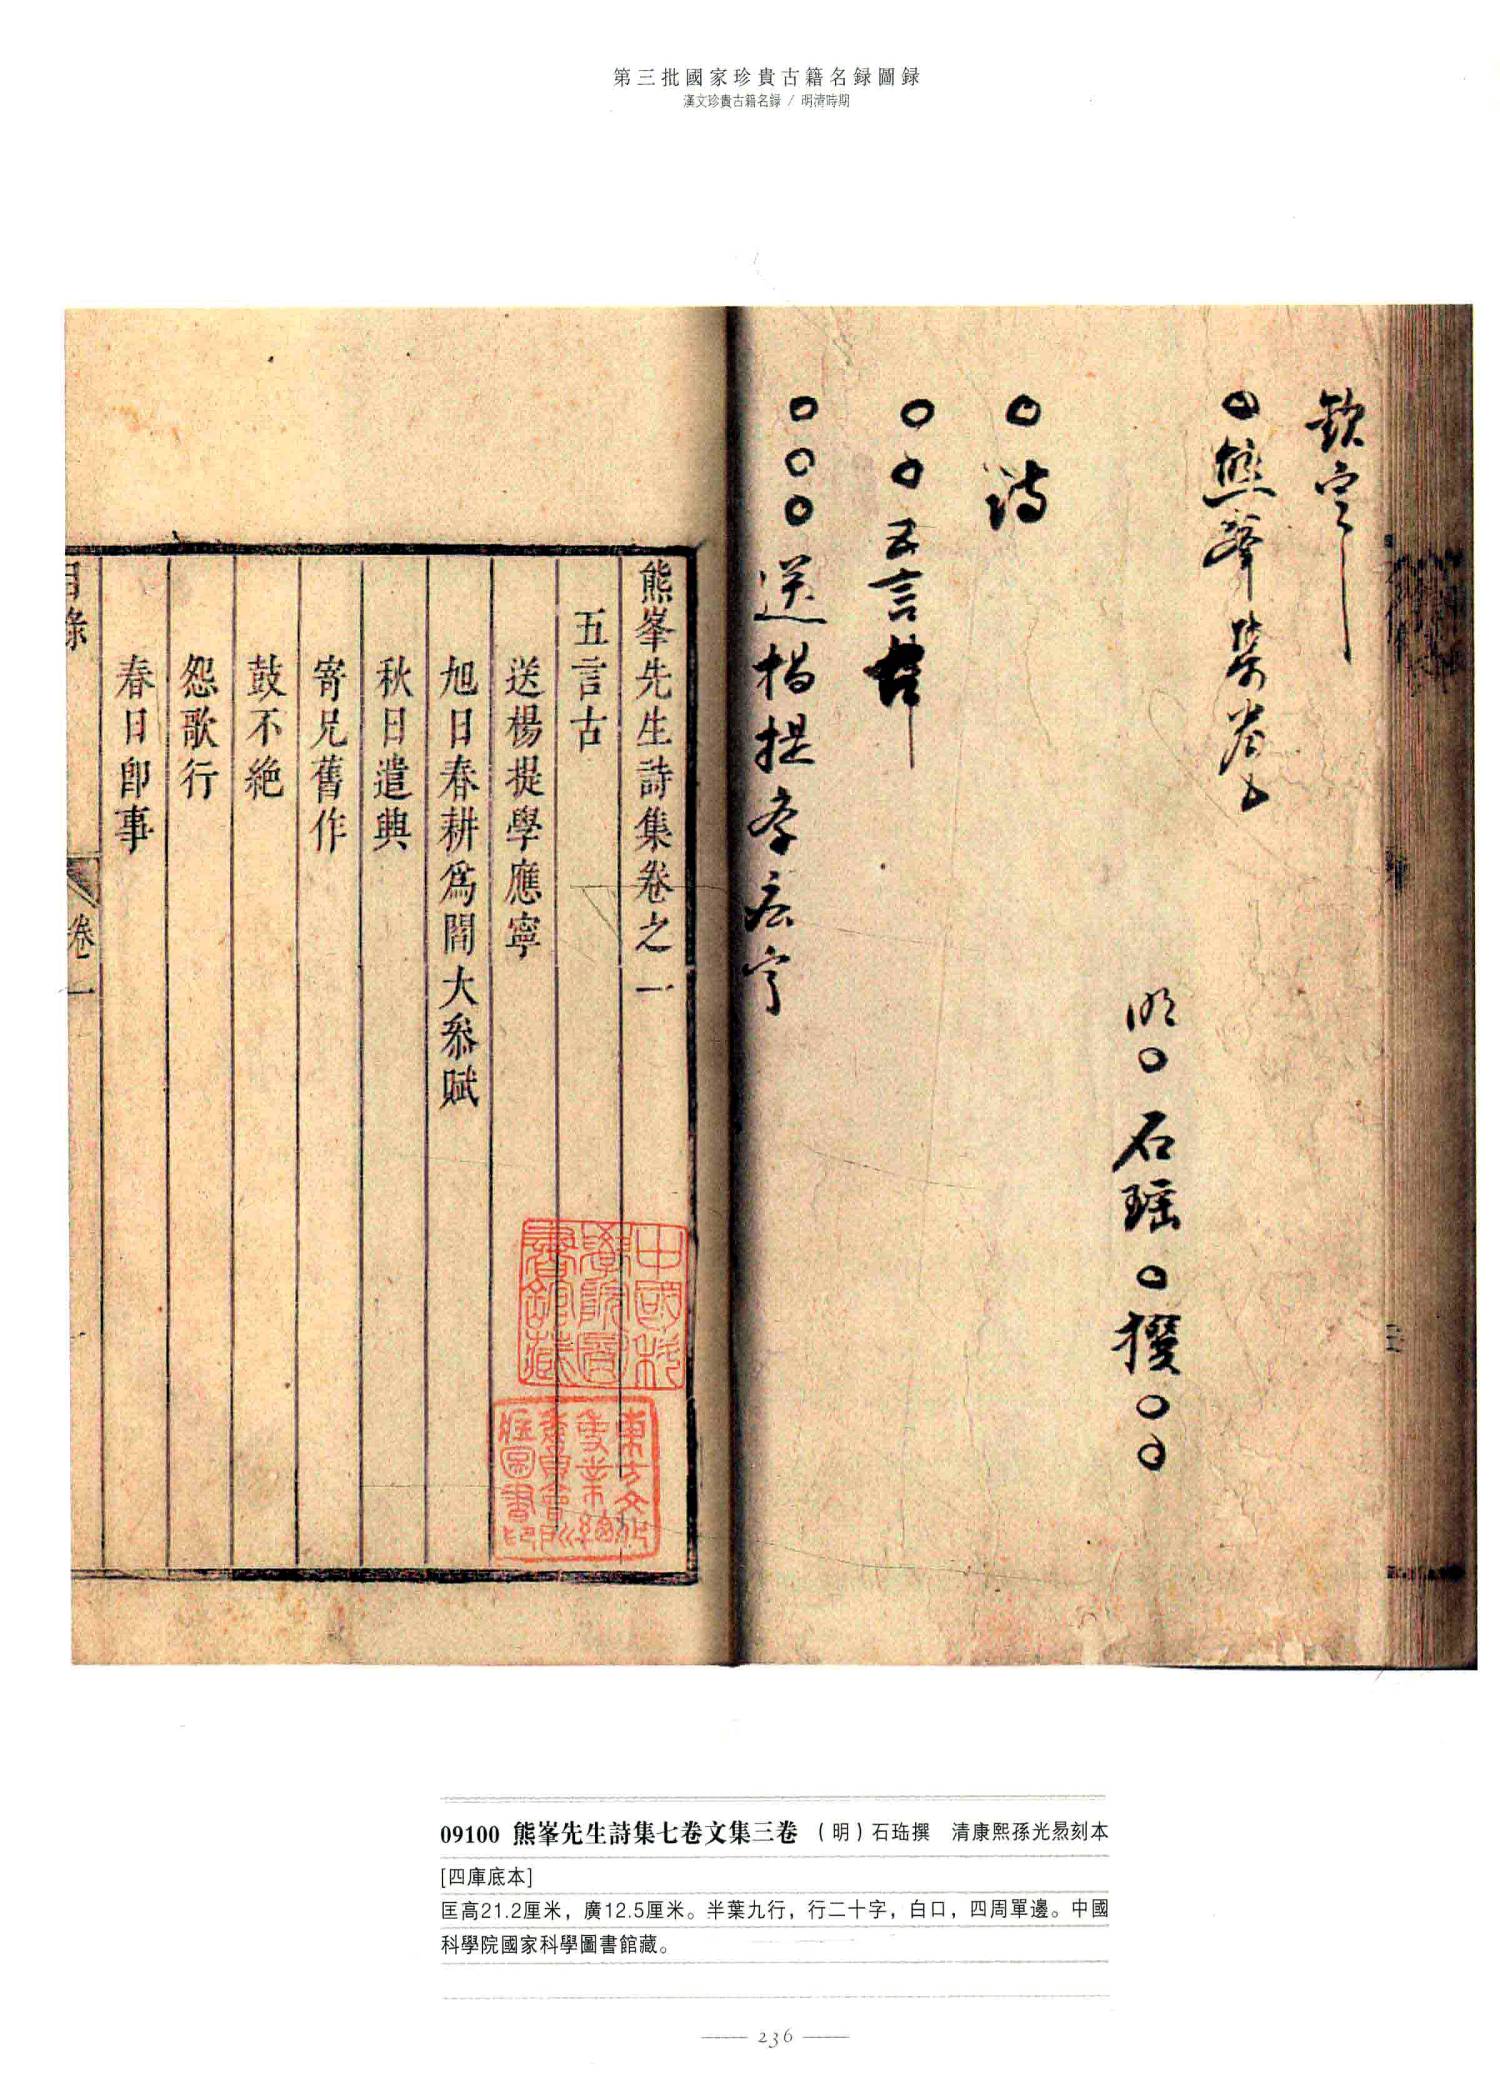 第三批國家珍貴古籍名録圖録
漢文珍貴古籍名録 / 明清時期
欽定
○熊峯集卷上
明○石珤○撰○○
○詩
○○五言古
○○○送楊提學應寧
熊峯先生詩集卷之一
五言古
送楊提學應寧
旭日春耕爲閻大叅賦
秋日遣興
寄兄舊作
鼓不絶
怨歌行
春日卽事
目錄
卷一
中國科
學院圖
書館藏
東方文化
事業總
委員會所
藏圖書印
09100 熊峯先生詩集七卷文集三卷 （明）石珤撰 清康熙孫光㬙刻本
[四庫底本]
匡高21.2厘米，廣12.5厘米。半葉九行，行二十字，白口，四周單邊。中國
科學院國家科學圖書館藏。
236